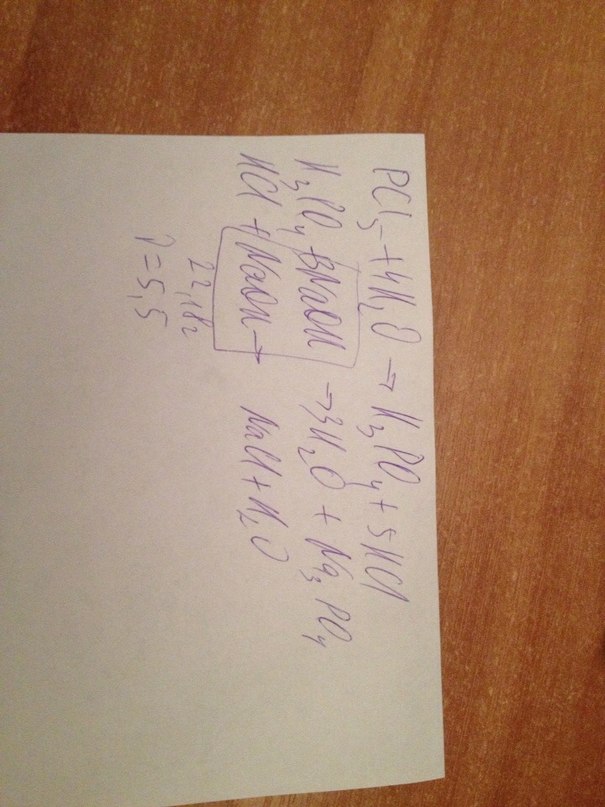 PCl5 + 4H2O → H3PO4 + 5HCl
H3PO4 + 3NaOH → 3H2O + Na3PO4
HCl + NaOH → NaCl + H2O
22,182
P = 5,5